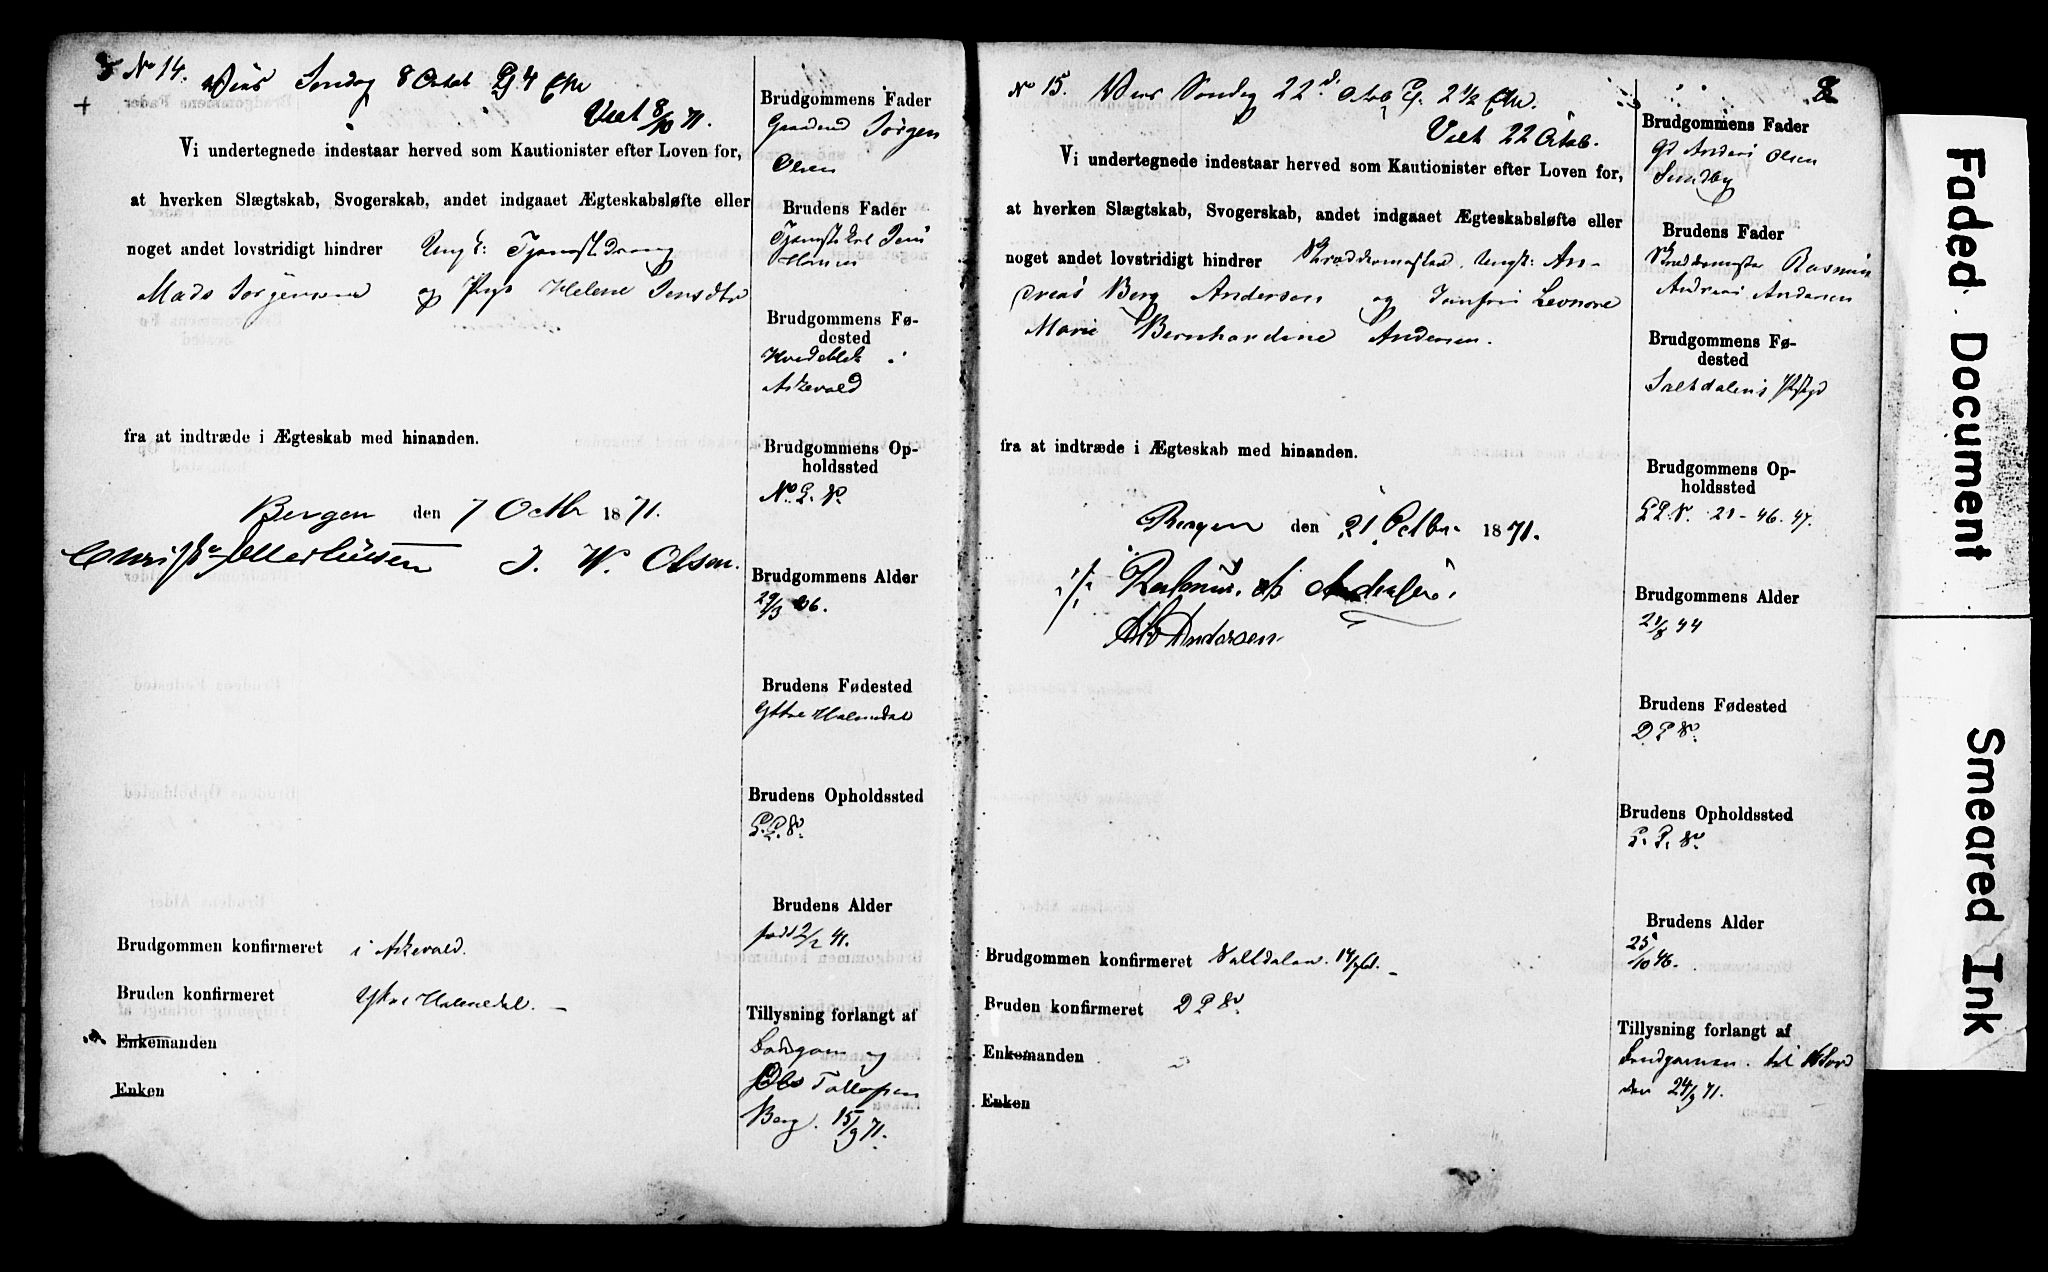 No 14. Vies Søndag 8 Octob Kl. 4 Efm
Viet 8/10 71.
Vi undertegnede indestaar herved som Kautionister efter Loven for,
at hverken Slægtskab, Svogerskab, andet indgaaet Ægteskabsløfte eller
noget andet lovstridigt hindrer Ungk: Tjenestedreng
Mads Jørgensen og Pige Helene Jensdtr
fra at indtræde i Ægteskab med hinanden.
Bergen den 7 Octbr 1871.
J. W. Olsen.
Brudgommen konfirmeret i Askevold.
Bruden konfirmeret Ytre Holmedal. —
Enkemanden
Enken
Brudgommens Fader
Gaardmd Jørgen
Olsen
Brudens Fader
Tjenestekarl Jens
Hansen
Brudgommens Fødested
Hvedeblek i
Askevold
Brudgommens Opholdssted
Brudgommens Alder
29/3 46.
Brudens Fødested
Yttre Holmedal
Brudens Opholdssted
Brudens Alder
født 2/2 41.
Tillysning forlangt af
Brudgom og
Tollefsen
Berg. 15/9 71.
No 15. Vies Søndag 22d Octob Kl. 2 1/2 Efm.
Viet 22 Octob.
Vi undertegnede indestaar herved som Kautionister efter Loven for,
at hverken Slægtskab, Svogerskab, andet indgaaet Ægteskabsløfte eller
noget andet lovstridigt hindrer Skræddermester Ungk: An-
dreas Berg Andersen og Jomfru Leonore
Marie Bernhardine Andersen.
fra at indtræde i Ægteskab med hinanden.
Bergen den 21 Octbr 1871.
Rasmus A Andersen
Andersen
Brudgommen konfirmeret Saltdalen.
Bruden konfirmeret D P S.
Enkemanden
Enken
Brudgommens Fader
Gd Anders Olsen
Sundby
Brudens Fader
Skræddermester Rasmus
Andreas Andersen
Brudgommens Fødested
Saltdalens Prstgd
Brudgommens Opholdssted
21-46.47.
Brudgommens Alder
21/8 44
Brudens Fødested
D P S.
Brudens Opholdssted
Brudens Alder
25/10 46.
Tillysning forlangt af
Brudgommen til
den 24/9 71.
Faded Document
Smeared Ink